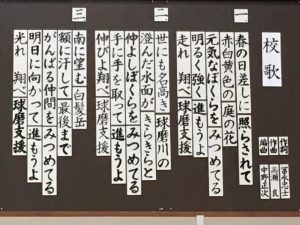 校歌
作詞 冨永忠士
作曲 高瀬良
編曲 中野正次
一
春の日差しに照らされて
赤白黄色の庭の花
元気なぼくらをみつめてる
明るく強く進もうよ
走れ 翔べ 球磨支援
二
世にも名高き球磨川の
澄んだ水面がきらきらと
仲よしぼくらをみつめてる
手に手を取って進もうよ
伸びよ 翔べ 球磨支援
三
南に望む白髪岳
額に汗して最後まで
がんばる仲間をみつめてる
明日に向かって進もうよ
光れ 翔べ 球磨支援